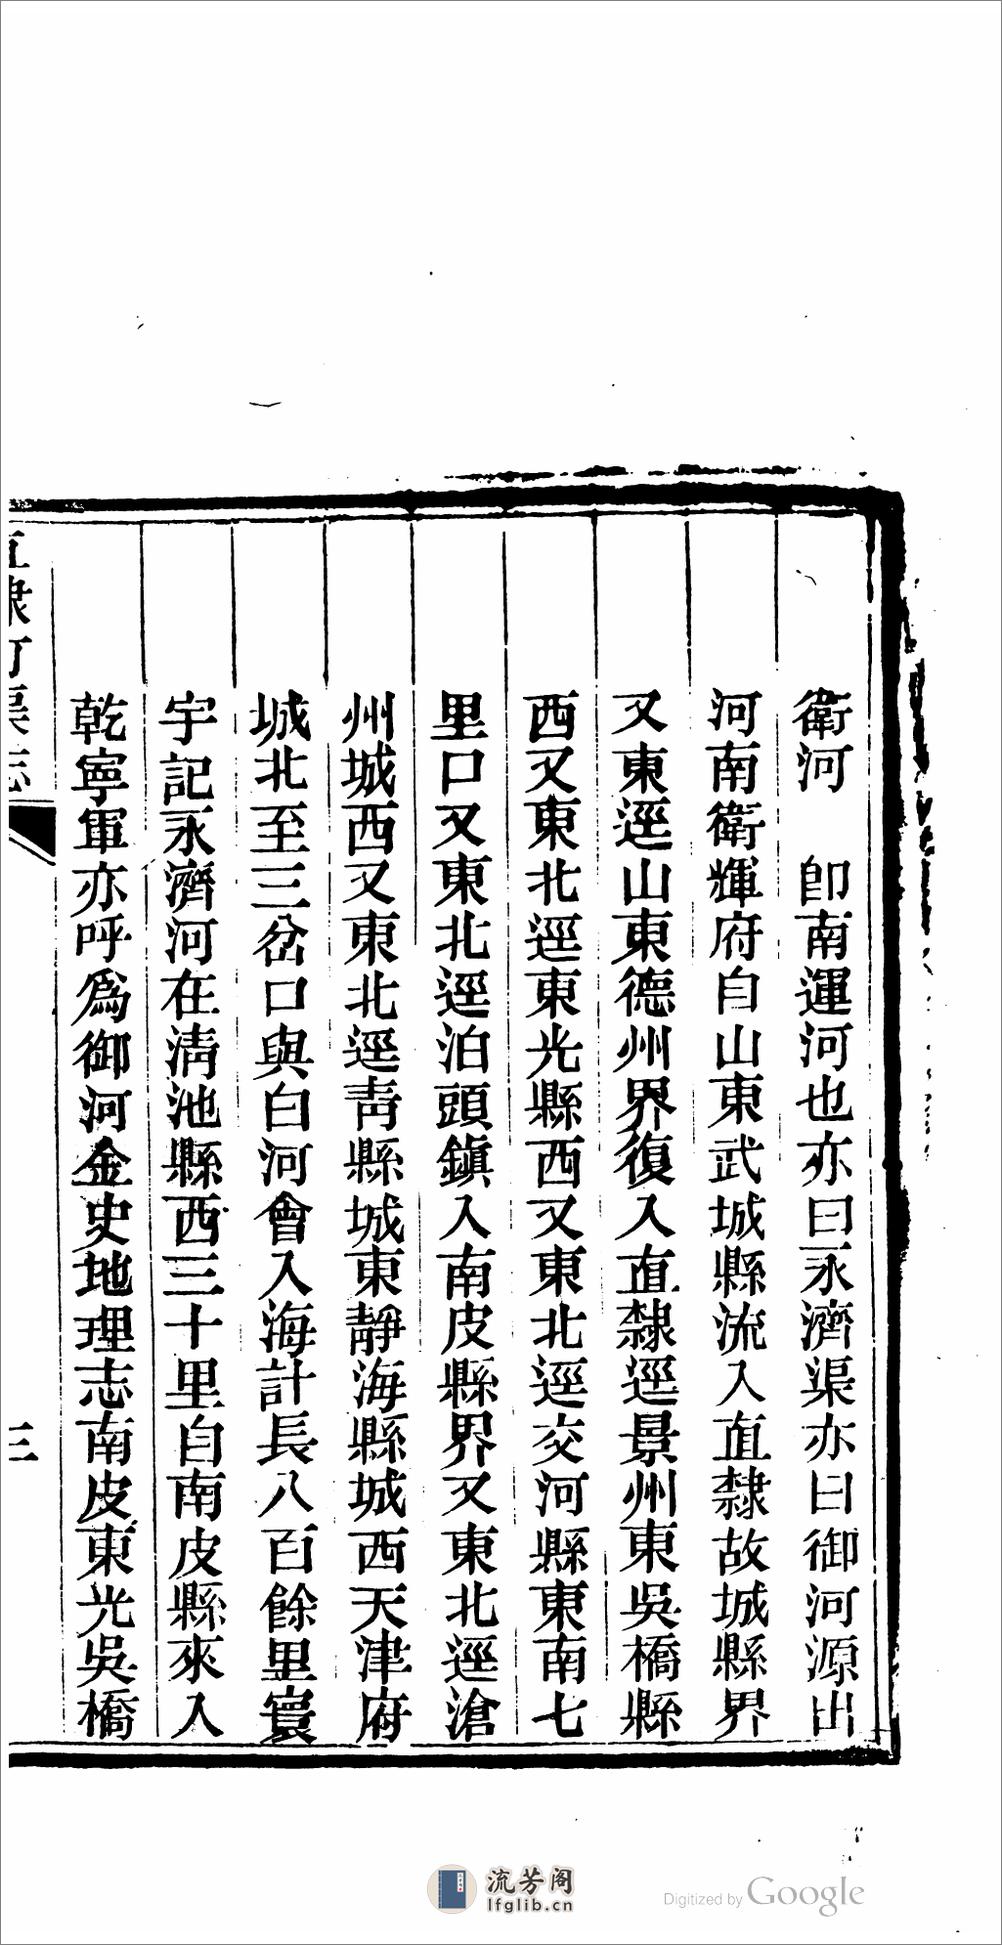 衛河　即南運河也亦曰永濟渠亦曰御河源出
河南衛輝府自山東武城縣流入直隸故城縣界
又東逕山東德州界復入直隸逕景州東吳橋縣
西又東北逕東光縣西又東北逕交河縣東南七
里口又東北逕泊頭鎮入南皮縣界又東北逕滄
州城西又東北逕靑縣城東靜海縣城西天津府
城北至三岔口與白河會入海計長八百餘里寰
宇記永濟河在淸池縣西三十里自南皮縣來入
乾寧軍亦呼爲御河金史地理志南皮東光吳橋
直隸河渠志
三
流芳阁
lfglib.cn
Digitized by Google